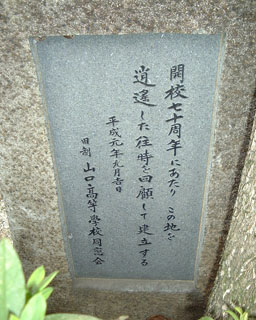 開校七十周年にあたり この地を
逍遥した往時を回顧して建立する
平成元年九月吉日
旧制 山口高等學校同窓会